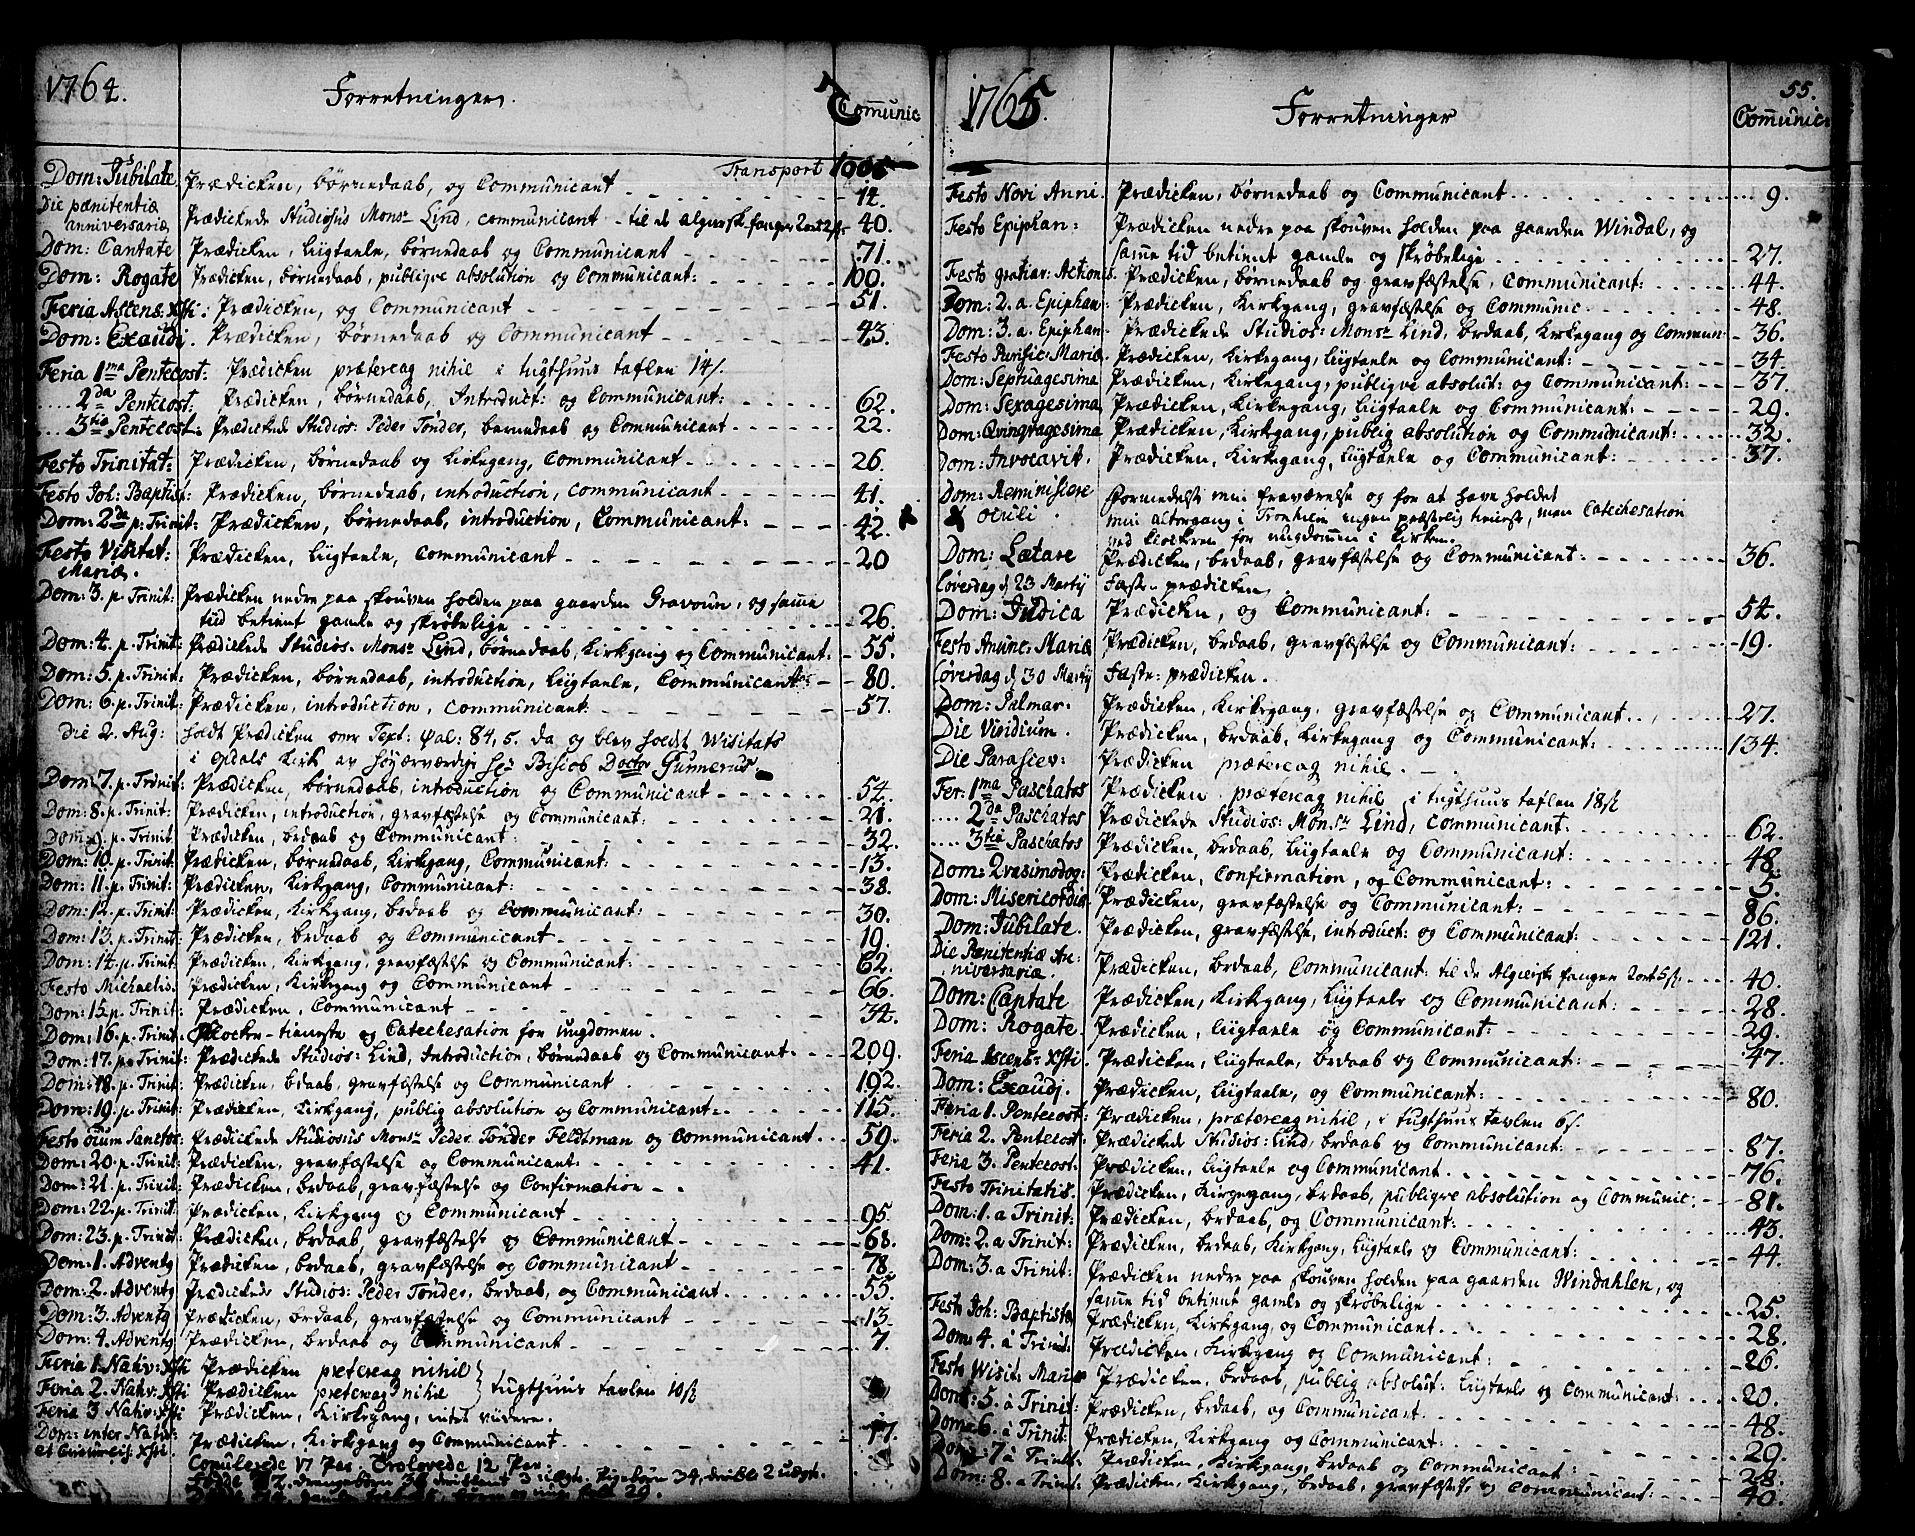 1764. Forretninger. Communic
Transport
Dom: Jubilate Prædicken, börnedaab, og Communicant 14.
Die pænitentiæ anniversariæ Prædickede Studiosus Monsr Lind, communicant - til de algiersk. fanger 2 ort 2 s 40.
Dom: Cantate Prædicken, liigtaele, börnedaab og Communicant 71.
Dom: Rogate Prædicken, börnedaab, publiqve absolution og Communicant: 100.
Feria Ascens: Xsti: Prædicken, og Communicant 51.
Dom: Exaudi. Prædicken, börnedaab og Communicant 43.
Feria 1ma Pentecost: Prædicken prætereaq nihil i tugthuus taflen 14 s.
.... 2da Pentecost: Prædicken, börnedaab, Introduct: og Communicant: 62.
.... 3tia Pentecost: Prædickede Studios: Peder Tönder, barnedaab og Communicant 22.
Festo Trinitat: Prædicken, börnedaab og kirkegang, Communicant 26.
Festo Joh: Baptist: Prædicken, börnedaab, introduction, communicant 41.
Dom: 2da p: Trinit: Prædicken, börnedaab, introduction, Communicant: 42.
Festo Visitat: Mariæ. Prædicken, liigtaele, Communicant 20
Dom: 3. p. Trinit: Prædicken nedre paa skouven holden paa gaarden Gravoun, og samme
tid betient gamle og skröbelige 26.
Dom: 4. p. Trinit: Prædickede Studios. Monsr Lind, börnedaab, Kirkgang og Communicant: 55.
Dom: 5. p. Trinit: Prædicken, börnedaab, introduction, liigtaele, Communicant 80.
Dom: 6. p. Trinit: Prædicken, introduction, communicant: 57.
die 2. Aug: holdt Prædicken over Text: Psal: 84, 5. da og blev holdt Visitats
i Opdals Kirk av höjærværdige hr Bisios Doctor Gunnerus
Dom: 7. p. Trinit: Prædicken, börnedaab, introduction og Communicant 54.
Dom: 8. p. Trinit: Prædicken, introduction, gravfæstelse og Communicant: 21.
Dom: 9. p. Trinit Prædicken, brdaab og Communicant: 32.
Dom: 10. p. Trinit. Prædicken, börnedaab, Kirkgang, Communicant: 13.
Dom: 11. p. Trinit: Prædicken, Kirkgang, Communicant: 38.
Dom: 12. p. Trinit: Prædicken, Kirkgang, brdaab og Communicant: 30.
Dom: 13. p. Trinit: Prædicken, brdaab og Communicant 19.
Dom: 14. p. Trinit. Prædicken, Kirkgang, gravfæstelse og Communicant: 62.
Festo Michaelis. Prædicken, Kirkgang og Communicant 66.
Dom: 15. p. Trinit: Prædicken, Communicant 34.
Dom: 16. p. Trinit: Klocker-tieneste og Catechesation for ungdomen.
Dom: 17. p. Trinit: Prædickede Studios: Lind, Introduction, börnedaab og Communicant 209.
Dom: 18. p. Trinit: Prædicken, brdaab, gravfæstelse og Communicant 192.
Dom: 19. p. Trinit Prædicken, Kirkgang, publiq absolution og Communicant 115.
Festo oium Sanctor: Prædickede Studiosus Monsr Peder Tönder Feldtman og Communicant 59.
Dom: 20. p. Trinit: Prædicken, gravfæstelse og Communicant: 41.
Dom: 21. p. Trinit: Prædicken, brdaab, gravfæstelse og Confirmation
Dom: 22. p. Trinit: Prædicken, Kirkgang og Communicant 95.
Dom: 23. p. Trinit: Prædicken, brdaab, gravfæstelse og Communicant 68.
Dom: 1. Adventg Prædicken, brdaab, gravfæstelse og Communicant 78.
Dom: 2. Adventg Prædickede Studios: Peder Tönder, brdaab, og Communicant 55.
Dom: 3. Adventg Prædicken, brdaab, gravfæstelse og Communicant 13.
Dom: 4. Adventg Prædicken, brdaab og Communicant 7.
Feria 1. Nativ: Xsti Prædicken prætereaq nihil
Feria 2. Nativ: Xsti Prædicken prætereaq nihil } tugthuus tavlen 10 s
Feria 3 Nativ: Xsti Prædicken, Kirkegang, intet videre.
Dom: inter Nativ: et Circumcis: Xsti Prædicken, Kirkgang og Communicant 17.
Copulerede 17 Par. Trolovede 12 Par:
1765. Forretninger 55. Communic:
Festo Novi Anni. Prædicken, börnedaab og Communicant 9.
Festo Epiphan: Prædicken nedre paa skouven holden paa gaarden Windal, og
samme tid betient gamle og skröbelige 27.
Festo gratiar: Actionis. Prædicken, börnedaab og gravfæstelse, Communicant: 44.
Dom: 2. a. Epiphan: Prædicken, Kirkgang, gravfæstelse og Communic 48.
Dom: 3. a. Epiphan. Prædickede Studios: Monsr Lind, brdaab, Kirkegang og Commun 36.
Festo Purific: Mariæ. Prædicken, Kirkgang, liigtaele og Communicant: 34.
Dom: Septuagesima Prædicken, Kirkegang, publiqve absolut: og Communicant: 37.
Dom: Sexagesima Prædicken, Kirkegang, liigtaele og Communicant: 29.
Dom: Qvinqvagesima Prædicken, Kirkgang, publiq absolution og Communicant: 32.
Dom: Invocavit. Prædicken, Kirkegang, liigtaele og Communicant: 37.
Dom: Reminiscere formedelst min fraværelse og for at have holdet
Oculi. min altergang i Tronhiem ingen præstelig tieneste, men Catechesation
ved klockeren for ungdommen i kirken.
Dom: Lætare Prædicken, brdaab, gravfæstelse og Communicant: 36.
Löverdag d 23 Martij Faste-prædicken
Dom: Judica Prædicken, og Communicant: 54.
Festo Anunc: Mariæ Prædicken, brdaab, gravfæstelse og Communicant: 19.
Löverdag d 30 Martij Faste-prædicken.
Dom: Palmar. Prædicken, Kirkegang, gravfæstelse og Communicant 27.
Die Viridium. Prædicken, brdaab, Kirkegang og Communicant: 134.
Die Parascev: Prædicken prætereaq nihil.
Fer: 1ma Paschatos Prædicken prætereaq nihil i tugthuus taflen 18 s
.... 2da Paschatos Prædickede Studios: Monsr Lind, communicant: 62.
.... 3tia Paschatos Prædicken, brdaab, liigtaele og Communicant: 48.
Dom: Qvasimodog: Prædicken, Confirmation, og Communicant: 5.
Dom: Misericordiæ Prædicken, gravfæstelse og Communicant: 86.
Dom: Jubilate. Prædicken, gravfæstelse, introduct: og Communicant: 121.
Die Pænitentiæ Anniversariæ. Prædicken, brdaab, Communicant: til de Algiersk fanger 2 ort 5 s. 40.
Dom: Cantate Prædicken, Kirkgang, liigtaele og Communicant: 28.
Dom: Rogate. Prædicken, liigtaele og Communicant: 29.
Feria Ascens: Xsti Prædicken, liigtaele, brdaab og Communicant: 47.
Dom: Exaudj. Prædicken, liigtaele, og Communicant: 80.
Feria 1. Pentecost: Prædicken, prætereaq nihil, i tugthuus tavlen 6 s.
Feria 2. Pentecost: Prædickede Studios: Lind, brdaab og Communicant: 87.
Feria 3. Pentecost. Prædicken, liigtaele og Communicant 76.
Festo Trinitatis. Prædicken, Kirgegang, brdaab, publiqve absolution og Communic. 81.
Dom: 1. a Trinit: Prædicken, brdaab, og Communicant: 43.
Dom: 2. a Trinit: Prædicken, brdaab, Kirkgang, liigtaele og Communicant: 44.
Dom: 3. a Trinit: Prædicken nedre paa skouven holden paa gaarden Windahlen, og
samme tid betient gamle og skröbelige 25.
Festo Joh: Baptistæ Prædicken, Kirkgang og Communicant 28.
Dom: 4. a Trinit: Prædicken, Kirkgang og Communicant: 26.
Festo Wisit: Mariæ Prædicken, brdaab, publiq absolut: liigtaele og Communicant: 20.
Dom: 5. a Trinit: Prædicken, brdaab, og Communicant. 48.
Dom: 6. a Trinit Prædicken, Kirkgang og Communicant: 29.
Dom: 7 a Trinit: Prædicken, Kirkgang, brdaab og Communicant 28.
Dom: 8. a Trinit: Prædicken, Kirkgang, brdaab, gravfæstelse og Communicant: 40.